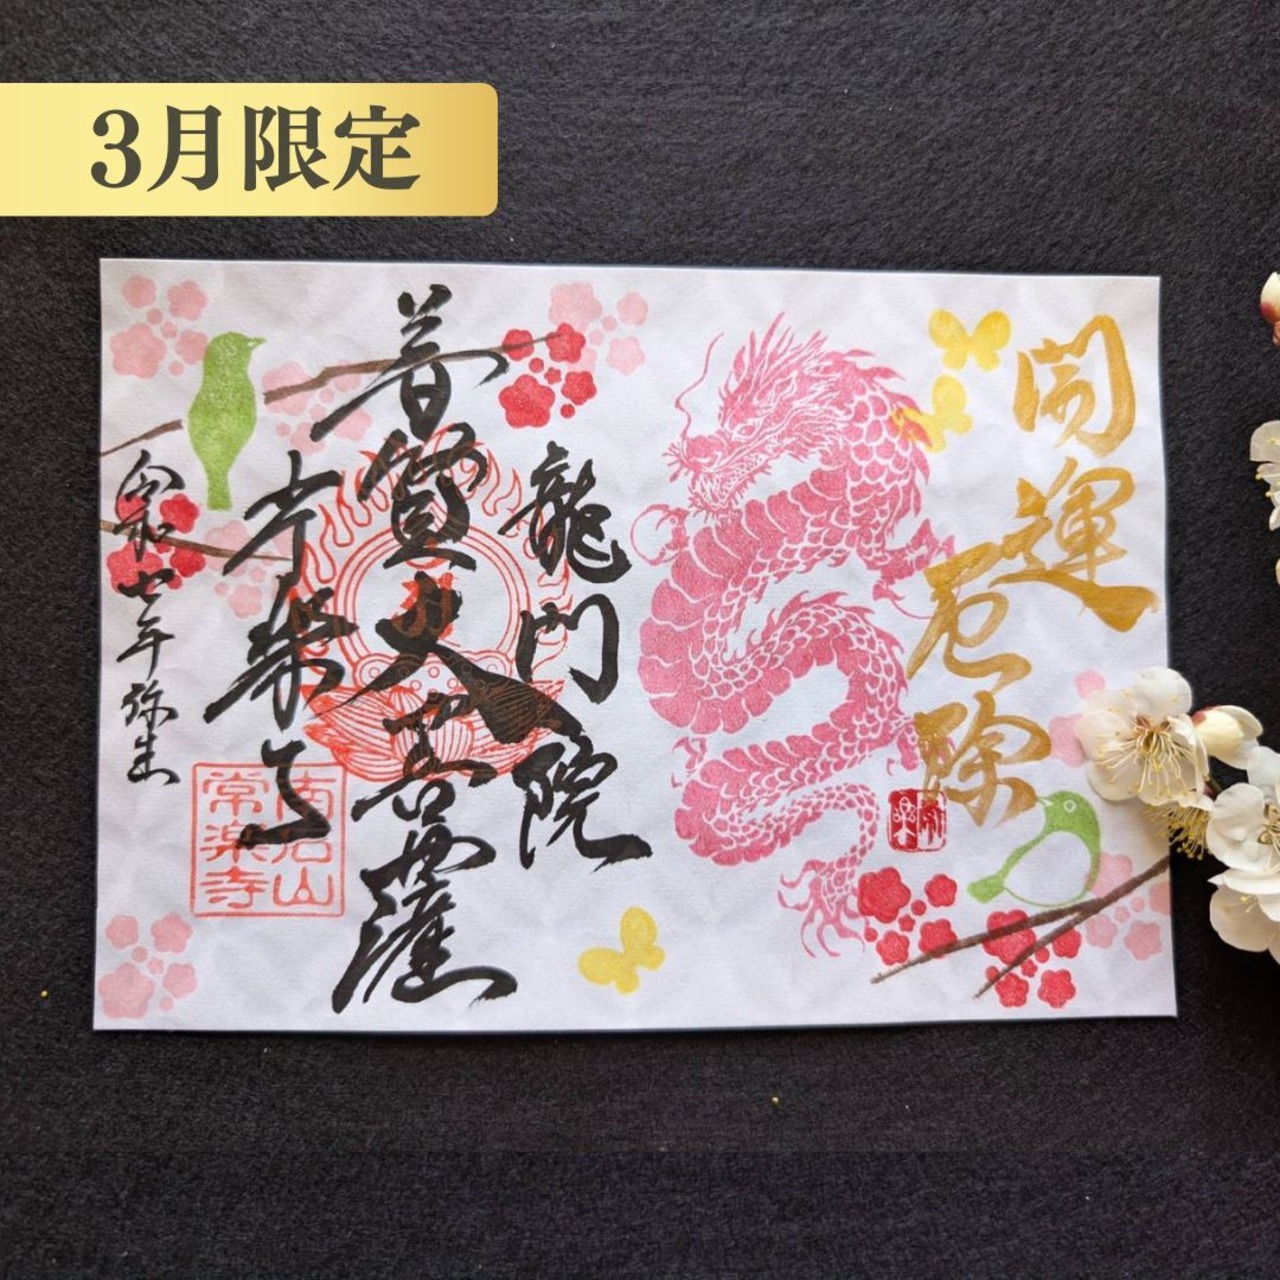 3月限定
開運
厄除
龍門院
普賢大菩薩
常楽寺
令和七年弥生
南岩山
常楽寺